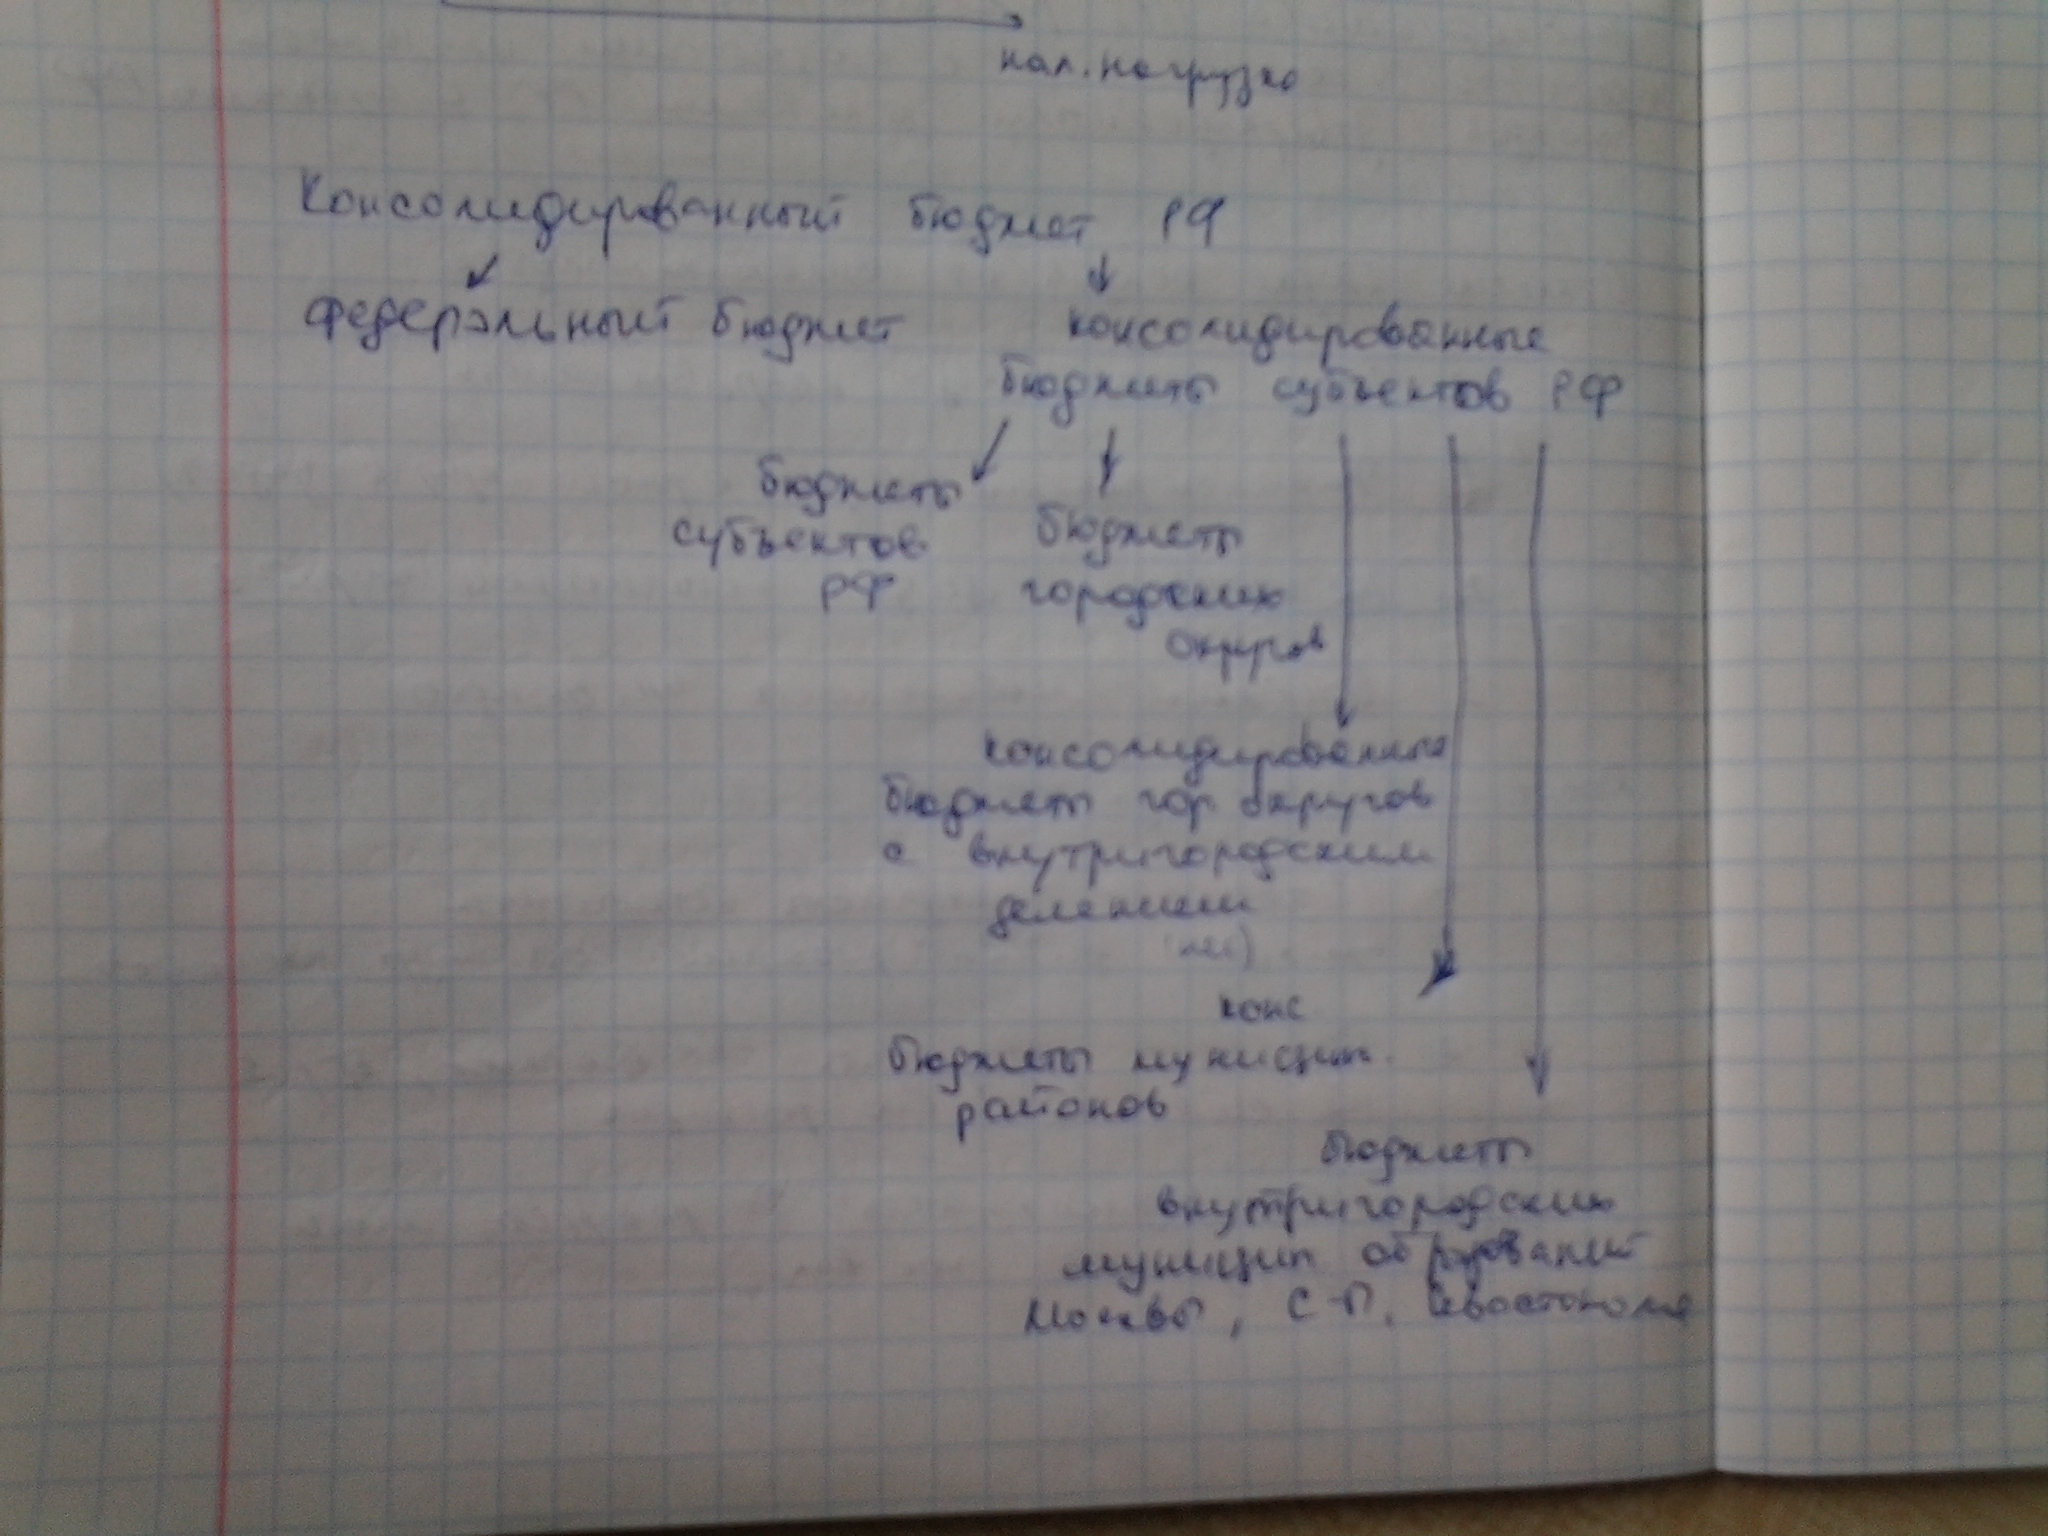 нал. нагрузка
Консолидированный бюджет РФ
Федеральный бюджет
консолидированные
бюджеты субъектов РФ
бюджеты
субъектов
РФ
бюджеты
городских
округов
консолидированные
бюджеты гор округов
с внутригородским
делением
конс
бюджеты муницип.
районов
бюджеты
внутригородских
муницип образований
Москвы, С-П, Севастополя